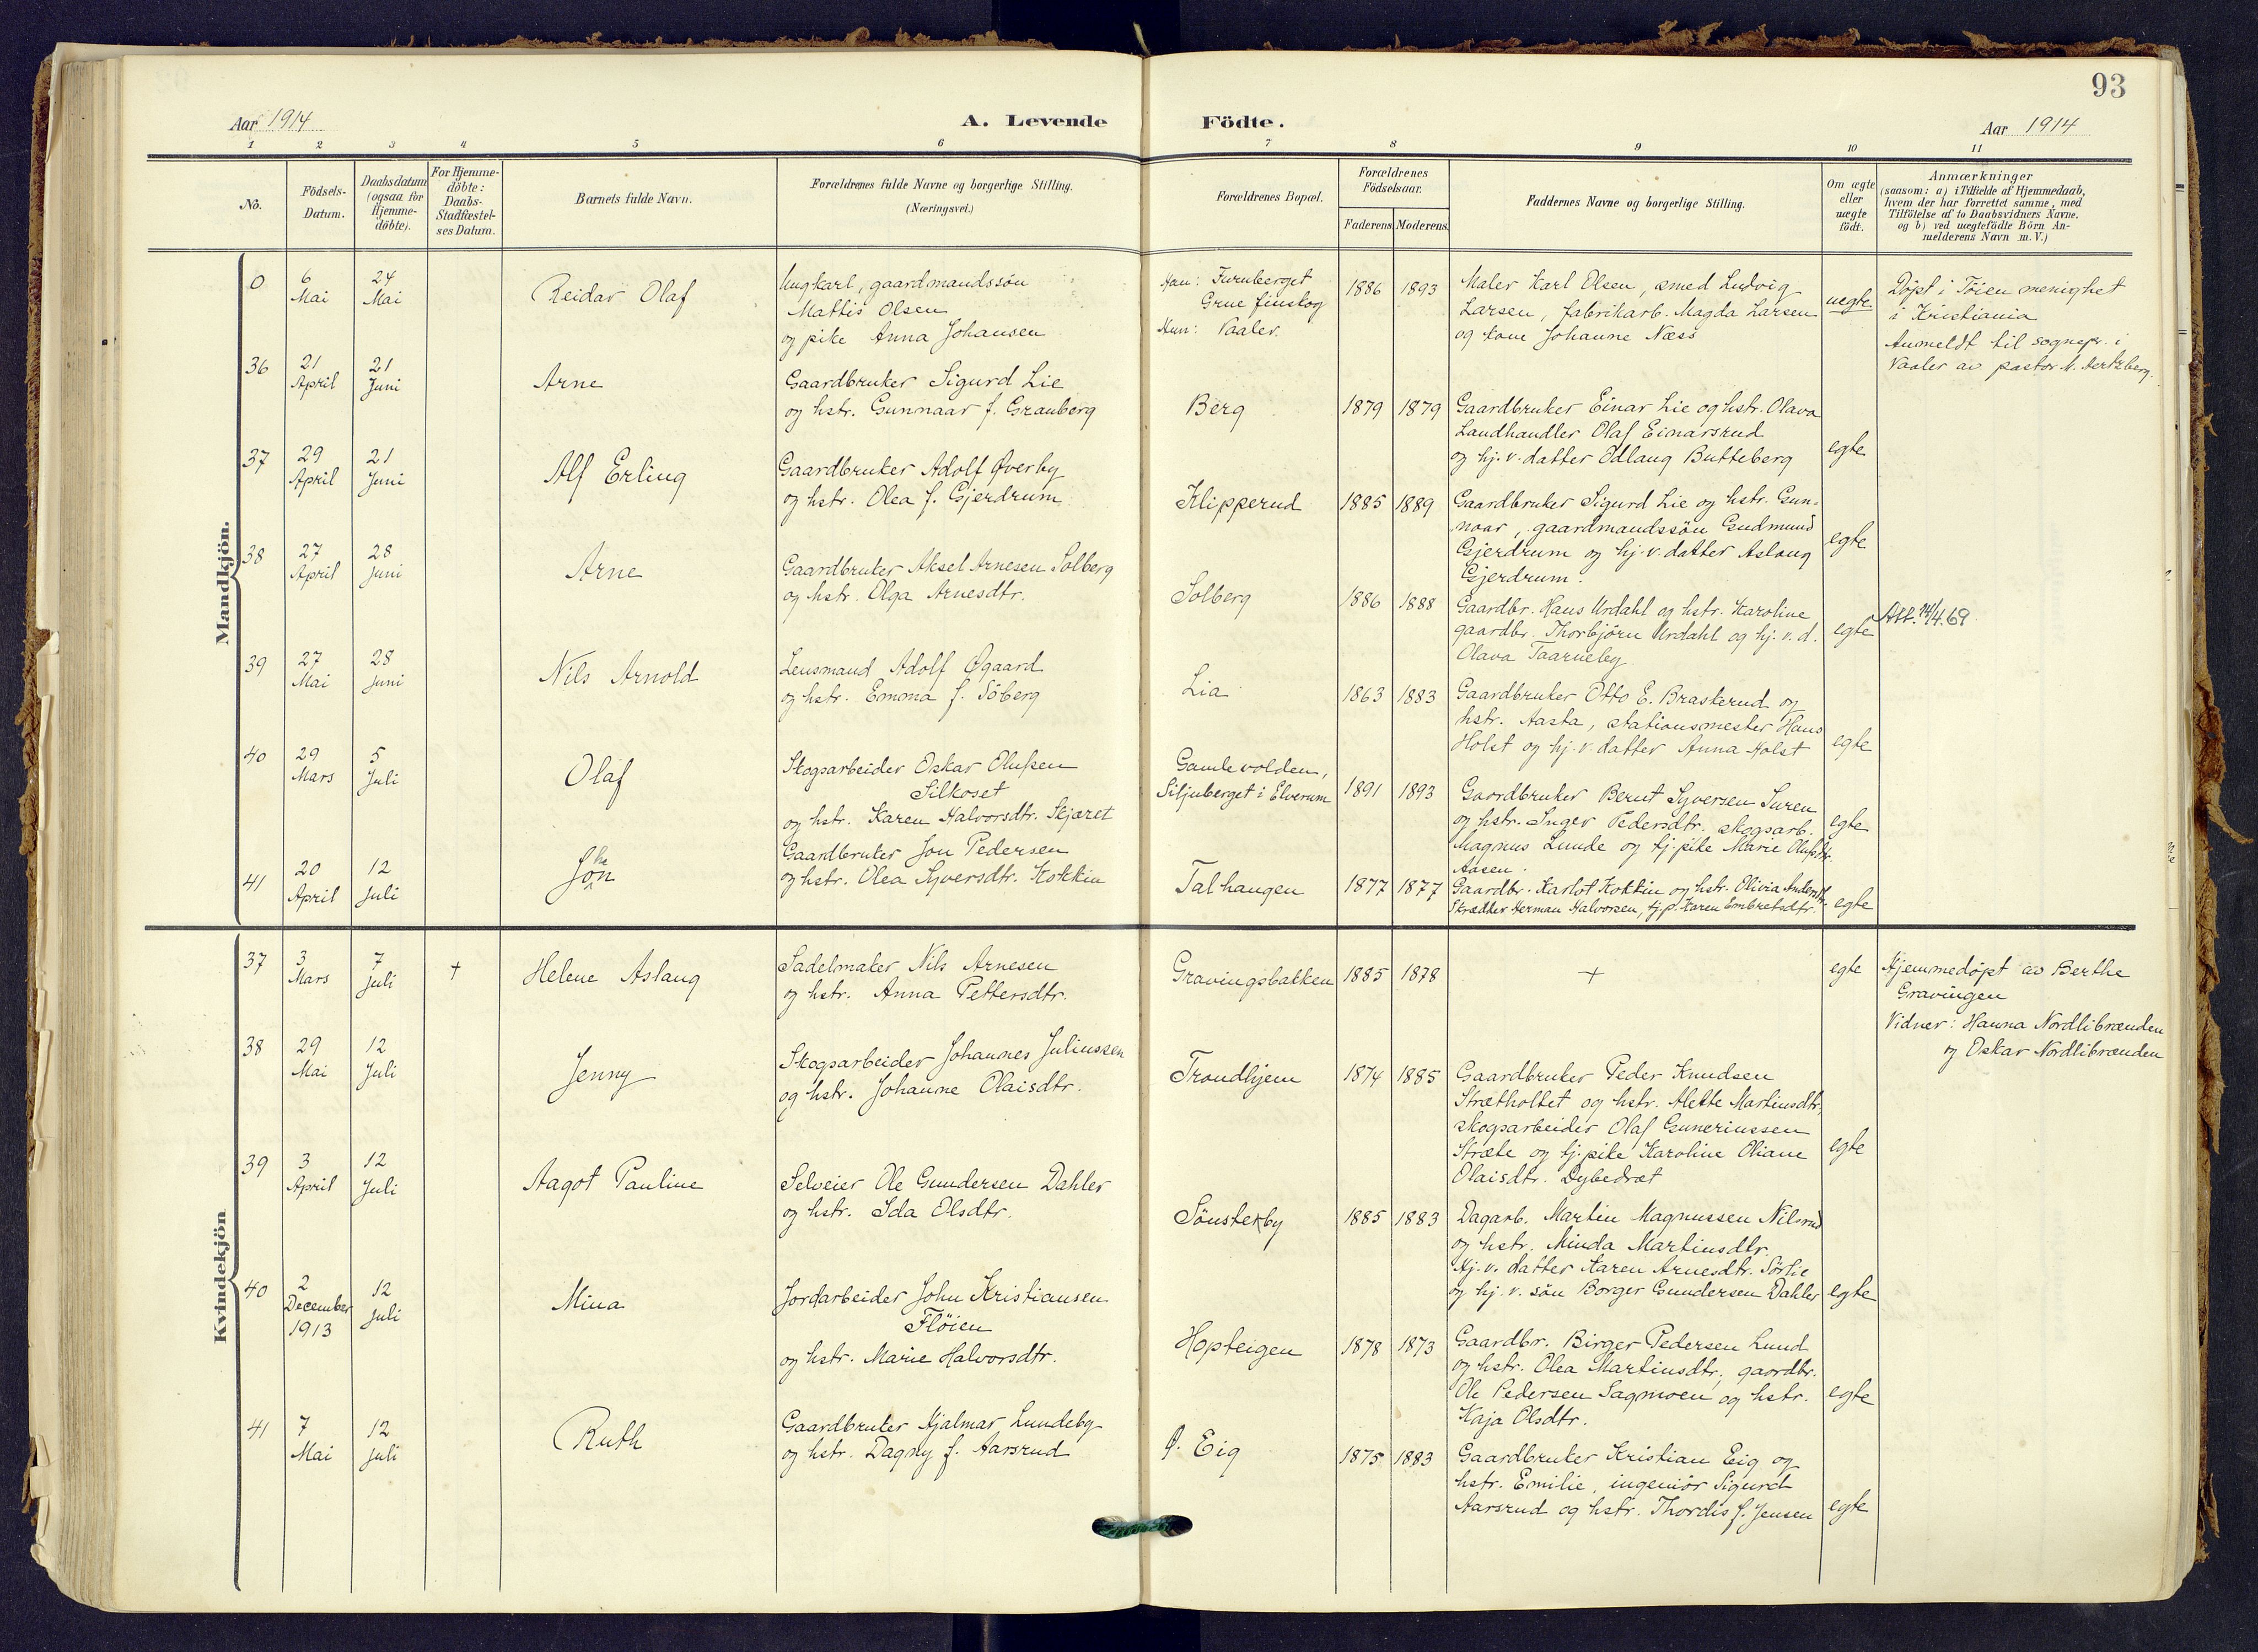 93
Aar 1914
A. Levende
Födte.
Aar 1914
1 2 3 4 5 6 7 8 9 10 11
No.
Födsels-
Datum.
Daabsdatum
(ogsaa for
Hjemme-
döbte).
For Hjemme-
döbte:
Daabs-
Stadfæstel-
ses Datum.
Barnets fulde Navn.
Forældrenes fulde Navne og borgerlige Stilling.
(Næringsvei.)
Forældrenes Bopæl.
Forældrenes
Födselsaar.
Faderens
Moderens
Faddernes Navne og borgerlige Stilling.
Om ægte
eller
uægte
födt.
Anmærkninger
(saasom: a) i Tilfælde af Hjemmedaab,
hvem der har forrettet samme, med
Tilföielse af to Daabsvidners Navne.
og b) ved uægtefödte Börn An-
melderens Navn m. V.)
Mandkjön.
0
6
Mai
24
Mai
Reidar Olaf
Ungkarl, gaardmandssön
Mattis Olsen
og pike Anna Johansen
Han: Furuberget
Grue finskog
Hun: Vaaler.
1886 1893
Maler Karl Olsen, smed Ludvig
Larsen, fabrikarb. Magda Larsen
og kone Johanne Næss
uegte
Döpt i Töien menighet
i Kristiania
Anmeldt til sognepr. i
Vaaler av pastor N. Hertzberg.
36
21
April
21
Juni
Arne
Gaardbruker Sigurd Lie
og hstr. Gunnaar f. Granberg
Berg
1879 1879
Gaardbruker Einar Lie og hstr. Olava
Landhandler Olaf Einarsrud
og hj. v. datter Odlaug Butteberg
egte
37
29
April
21
Juni
Alf Erling
Gaardbruker Adolf Överby
og hstr. Olea f. Gjerdrum
Klipperud
1885 1889
Gaardbruker Sigurd Lie og hstr. Gun-
naar, gaardmandssön Gudmund
Gjerdrum og hj. v. datter Aslaug
Gjerdrum.
egte
38
27
April
28
Juni
Arne
Gaardbruker Aksel Arnesen Solberg
og hstr. Olga Arnesdtr.
Solberg
1886 1888
Gaardbr. Hans Urdahl og hstr. Karoline
gaardbr. Thorbjörn Urdahl og hj. v. d.
Olava Taarneby
egte
Att. 14/4.69.
39
27
Mai
28
Juni
Nils Arnold
Lensmand Adolf Øgaard
og hstr. Emma f. Söberg
Lia
1863 1883
Gaardbruker Otto E. Brasterud og
hstr. Aasta, stationsmester Hans
Holst og hj. v. datter Anna Holst
egte
40
29
Mars
5
Juli
Olaf
Skogsarbeider Oskar Olufsen
Silkoset
og hstr. Karen Halvorsdtr. Skjæret
Gamlevolden,
Siljuberget i Elverum
1891 1893
Gaardbruker Bernt Syversen Suren
og hstr. Inger Pedersdtr. skogsarb.
Magnus Lunde og tj. pike Marie Olufsdtr.
Aasen.
egte
41
20
April
12
Juli
John
Gaardbruker Jon Pedersen
og hstr. Olea Syversdtr. Kokkin
Talhaugen
1877 1877
Gaardbr. Karlot Kokkin og hstr. Olivia Andersdtr.
Skrædder Herman Halvorsen, tj. p. Karen Embretsdtr.
egte
Kvindekjön
37
3
Mars
7
Juli
+
Helene Aslaug
Sadelmaker Nils Arnesen
og hstr. Anna Pettersdtr.
Gravingsbakken
1885 1878
+
egte
Hjemmedöpt av Berthe
Gravingen
Vidner: Hanna Nordlibrænden
og Oskar Nordlibrænden
38
29
Mai
12
Juli
Jenny
Skogsarbeider Johannes Juliussen
og hstr. Johanne Olaisdtr.
Trondhjem
1874 1885
Gaardbruker Peder Knudsen
Strætholtet og hstr. Alette Martinsdtr,
skogsarbeider Olaf Gunerinssen
Stræte og tj. pike Karoline Oliane
Olaisdtr. Dybedræt
egte
39
3
April
12
Juli
Aagot Pauline
Selveier Ole Gundersen Dahler
og hstr. Ida Olsdtr.
Sönsterby
1885 1883
Dagarb. Martin Magnussen Nilsrud
og hstr. Minda Martinsdtr.
Hj. v. datter Karen Arnesdtr. Sörlie
og hj. v. sön Borger Gundersen Dahler
egte
40
2
December
1913
12
Juli
Mina
Jordarbeider John Kristiansen
Flöien
og hstr. Marie Halvorsdtr.
Hopteigen
1878 1873
Gaardbr. Birger Pedersen Lund
og hstr. Olea Martinsdtr, gaardbr.
Ole Pedersen Sagmoen og hstr.
Kaja Olsdtr.
egte
41
7
Mai
12
Juli
Ruth
Gaardbruker Hjalmar Lundeby
og hstr. Dagny f. Aarsrud
Ø. Eig
1875 1883
Gaardbruker Kristian Eig og
hstr. Emilie, ingeniör Sigurd
Aarsrud og hstr. Thordis f. Jensen
egte